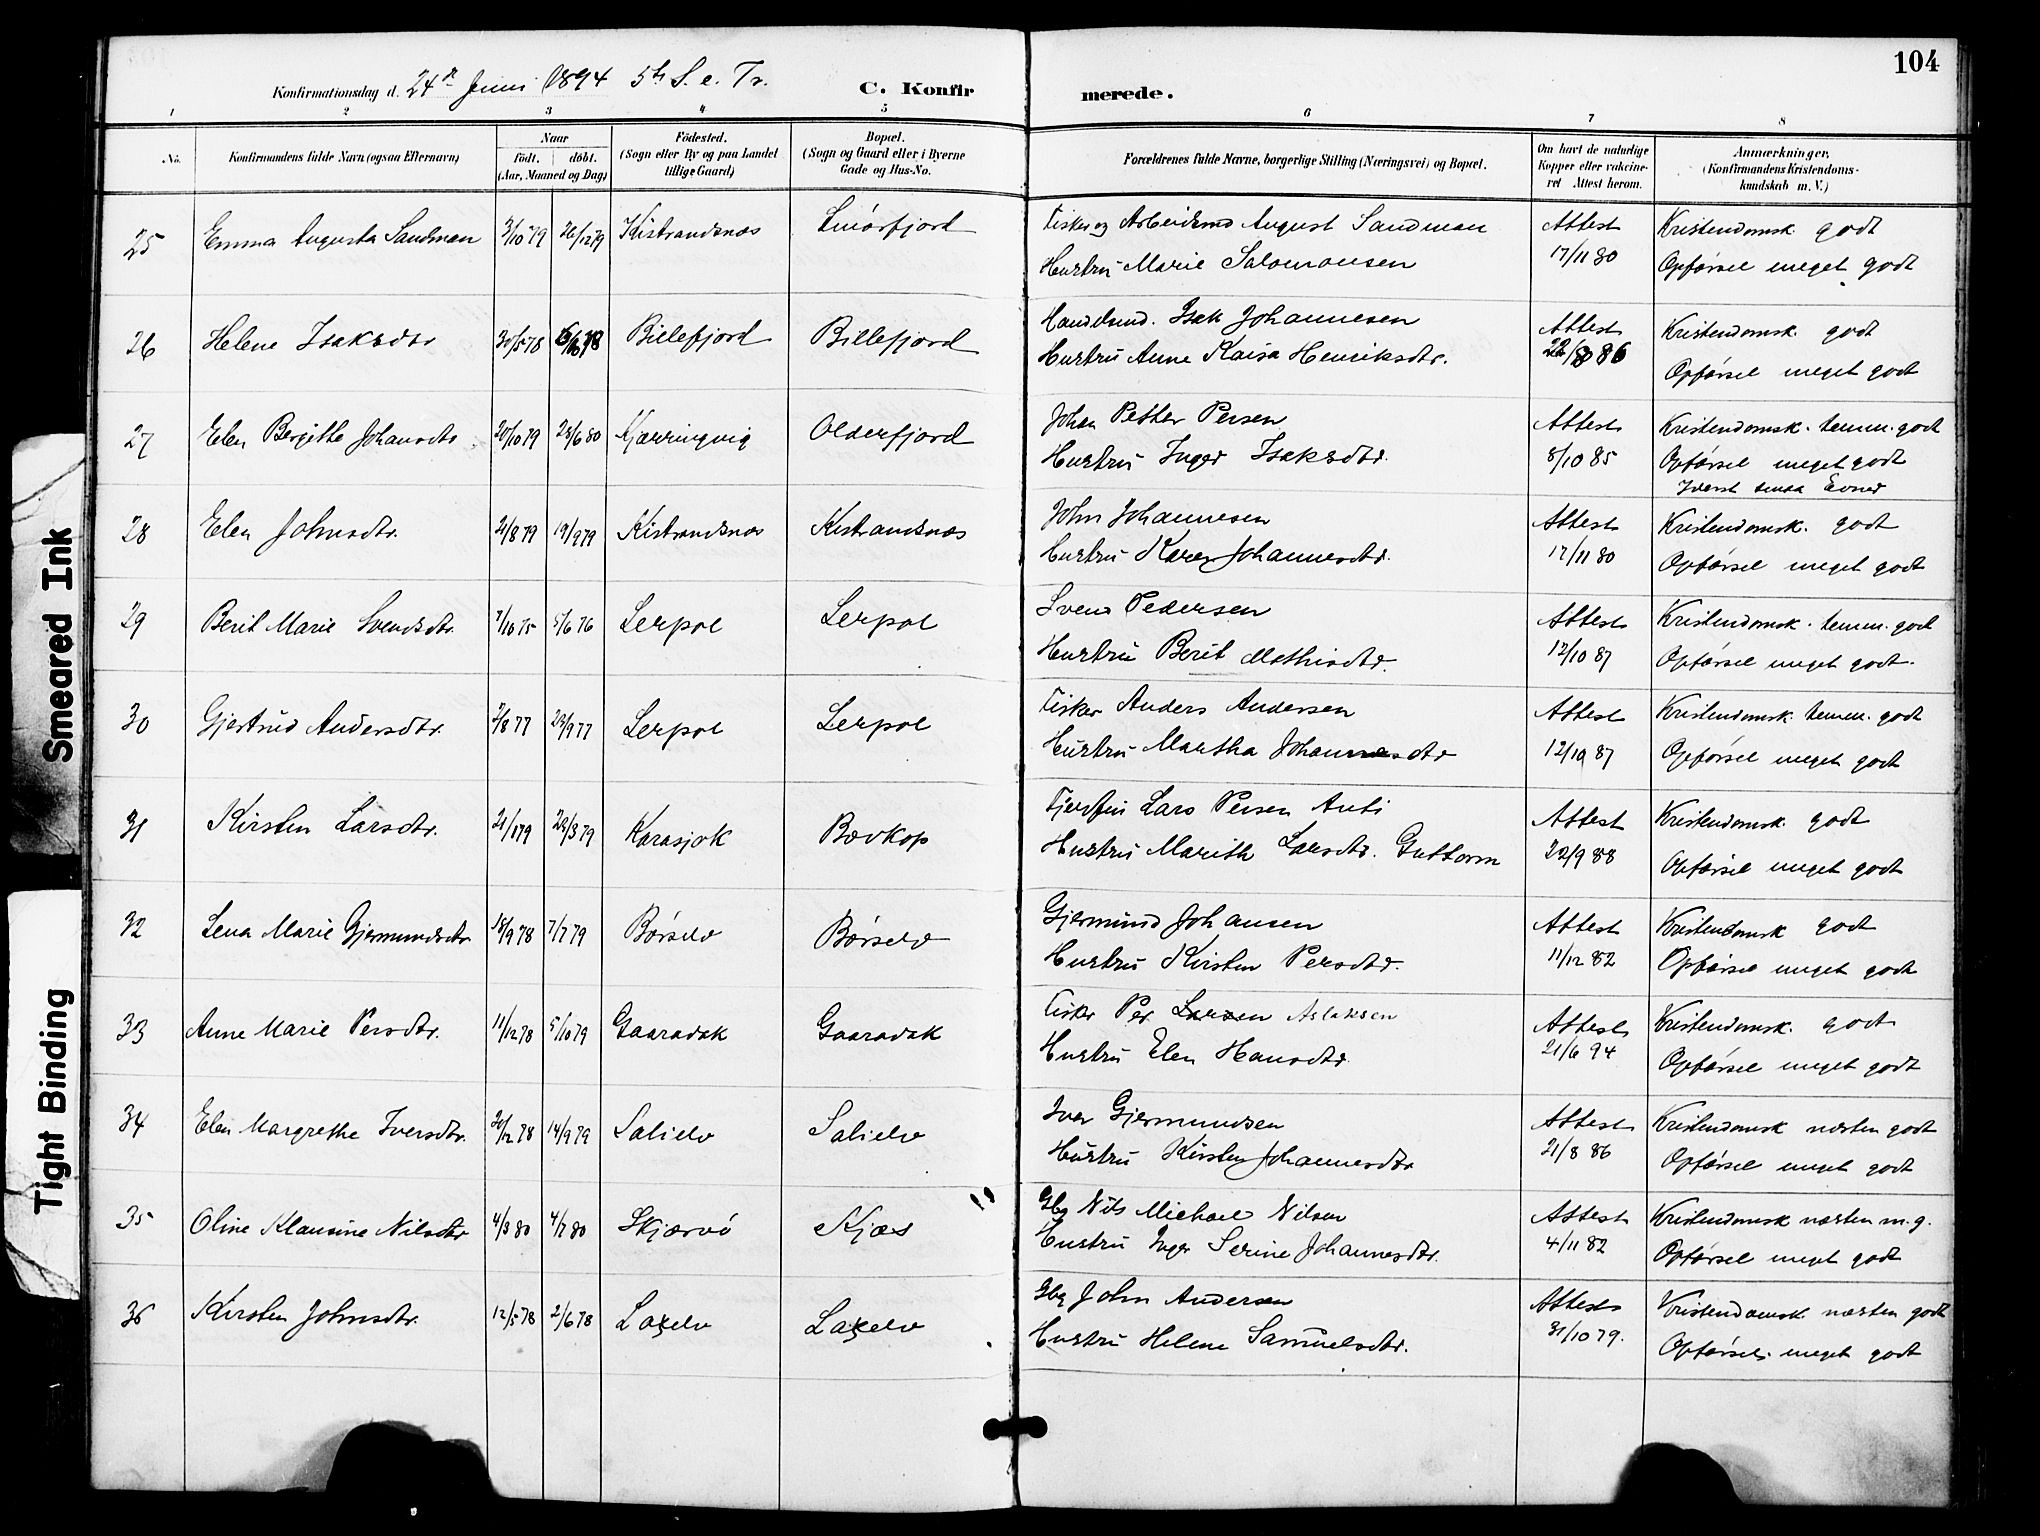 104
Konfirmationsdag d. 24de Juni 1894 5te S. e. Tr. C. Konfirmerede.
1 2 3 4 5 6 7 8
No. Konfirmandens fulde Navn (ogsaa Efternavn) Naar født. døbt. (Aar, Maaned og Dag) Fødested. (Sogn eller By og paa Landet tillige Gaard) Bopæl. (Sogn og Gaard eller i Byerne Gade og Hus-No. Forældrenes fulde Navne, borgerlige Stilling (Næringsvei) og Bopæl. Om havt de naturlige Kopper eller vakcineret Attest herom. Anmærkninger. (Konfirmandens Kristendomskundskab m. V.)
25 Emma Augusta Sandman 3/10 79 26/12 79 Kistrandsnæs Smørfjord Fisker og Arbeidsmd August Sandman Attest Kristendomsk. godt
Hustru Marie Salomonsen 17/11 80 Opførsel meget godt
26 Helene Isaksdtr 30/5 78 Billefjord Billefjord Handelsmd. Isak Johannesen Attest Kristendomsk. godt
Hustru Anne Kaisa Henriksdtr. 22/8 86 Opførsel meget godt
27 Elen Bergitte Johansdtr 20/10 79 28/6 80 Kjærringvig Olderfjord Johan Petter Persen Attest Kristendomsk. temm. godt
Hustru Inger Isaksdtr. 8/10 85 Opførsel meget godt
Iversl smaa Evner
28 Elen Johnsdtr. 21/8 79 19/9 79 Kistrandsnæs Kistrandsnæs John Johannesen Attest Kristendomsk. godt
Hustru Karen Johannesdtr. 17/11 80 Opførsel meget godt
29 Berit Marie Svendsdtr. 7/10 75 5/6 76 Lerpol Lerpol Svend Pedersen Attest Kristendomsk. temm. godt
Hustru Berit Mathisdtr. 12/10 87 Opførsel meget godt.
30 Gjertrud Andersdtr. 2/8 77 23/9 77 Lerpol Lerpol Fisker Anders Andersen Attest Kristendomsk. temm. godt
Hustru Martha Johannesdtr 12/10 87 Opførsel meget godt
31 Kirsten Larsdtr. 21/1 79 23/3 79 Karasjok Bovkop Fjeldfin Lars Persen Anti Attest Kristendomsk. godt
Hustru Marith Larsdtr. Guttorm 22/9 88 Opførsel meget godt
32 Lena Marie Gjermundsdtr. 18/9 78 7/7 79 Børselv Børselv Gjermund Johansen Attest Kristendomsk godt
Hustru Kirsten Persdtr. 11/12 82 Opførsel meget godt
33 Anne Marie Persdtr. 11/12 78 5/10 79 Gaaradak Gaaradak Fisker Per Larsen Aslaksen Attest Kristendomsk. godt
Hustru Elen Hansdtr. 21/6 94 Opførsel meget godt
34 Elen Margrethe Iversdtr. 20/12 78 14/9 79 Salielv Salielv Iver Gjermundsen Attest Kristendomsk næsten godt
Hustru Kirsten Johannesdtr 21/8 86 Opførsel meget godt
35 Oline Klausine Nilsdtr 4/3 80 4/7 80 Skjærvø Kjæs Gbg Nils Michael Nilsen Attest Kristendomsk næsten m. g.
Hustru Inger Serine Johannesdtr. 4/11 82 Opførsel meget godt
36 Kirsten Johnsdtr. 12/5 78 2/6 78 Laxelv Laxelv Gbg John Andersen Attest Kristendomsk næsten godt
Hustru Helene Samuelsdtr. 31/10 79. Opførsel meget godt
Smeared Ink
Tight Binding